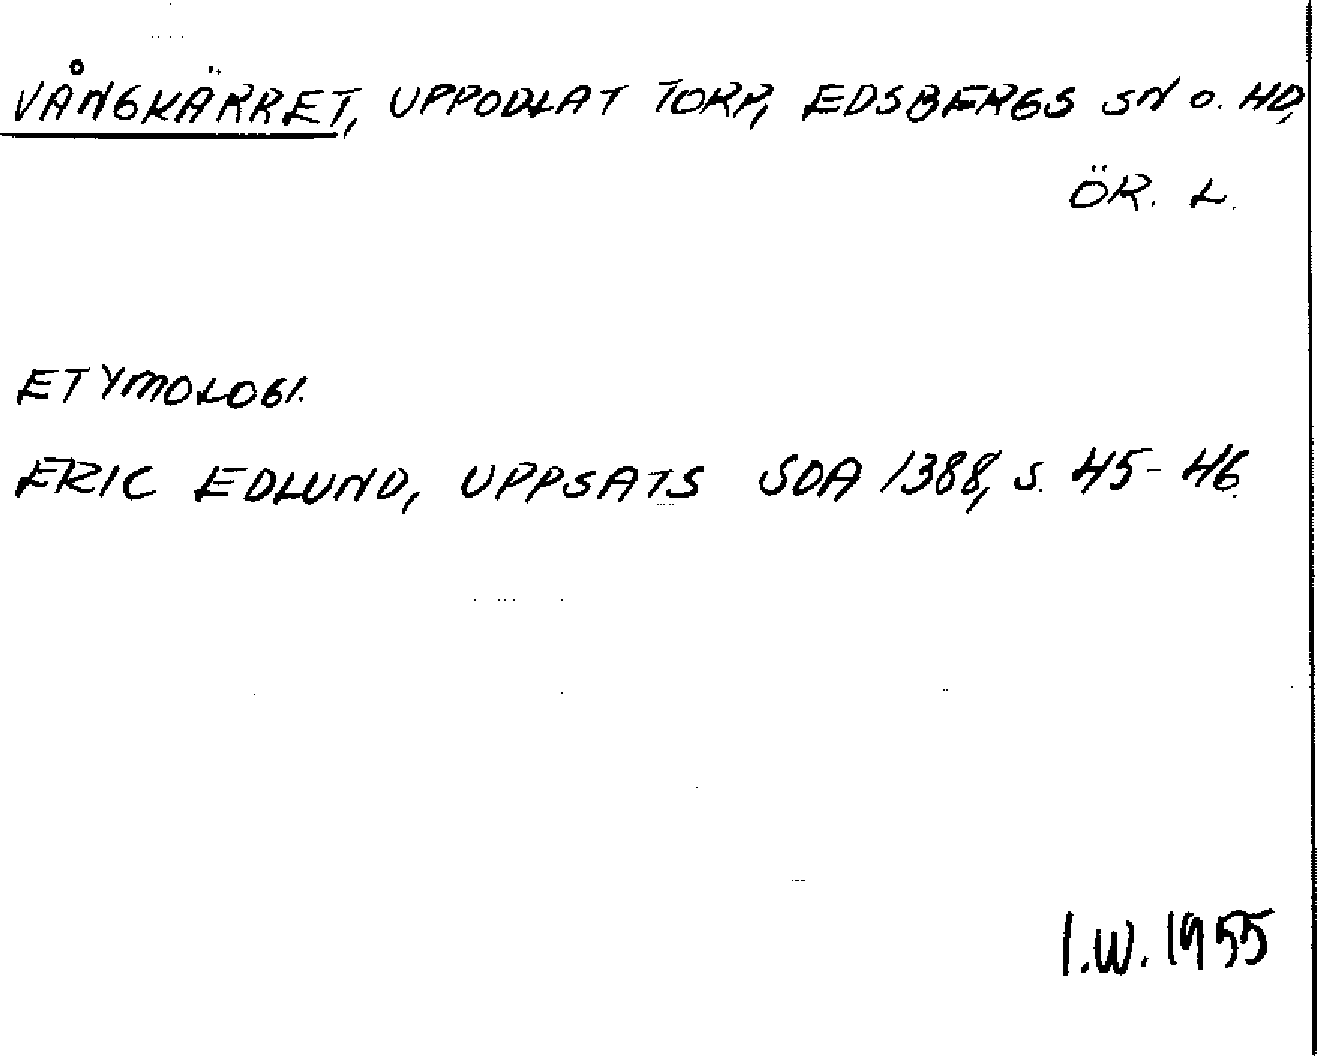 VÅNGKÄRRET, UPPODLAT TORP, EDSBERGS SN O. HD,
ÖR. L.
ETYMOLOGI.
ERIC EDLUND, UPPSATS SOA 1388, S. 45-46.
I.W. 1955